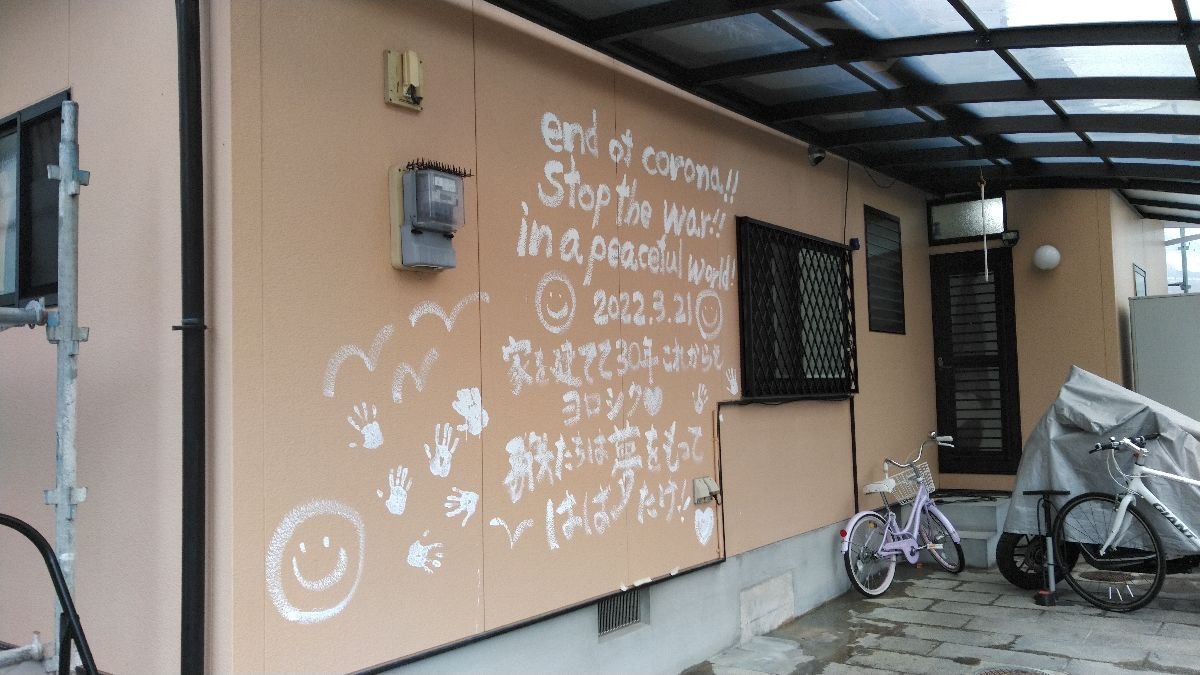 end of corona!!
Stop the war!!
in a peaceful world!
2022.3.21
家を建てて30年これからも
ヨロシク♥
孫たちは夢をもって
はばタたけ!!
GIANT